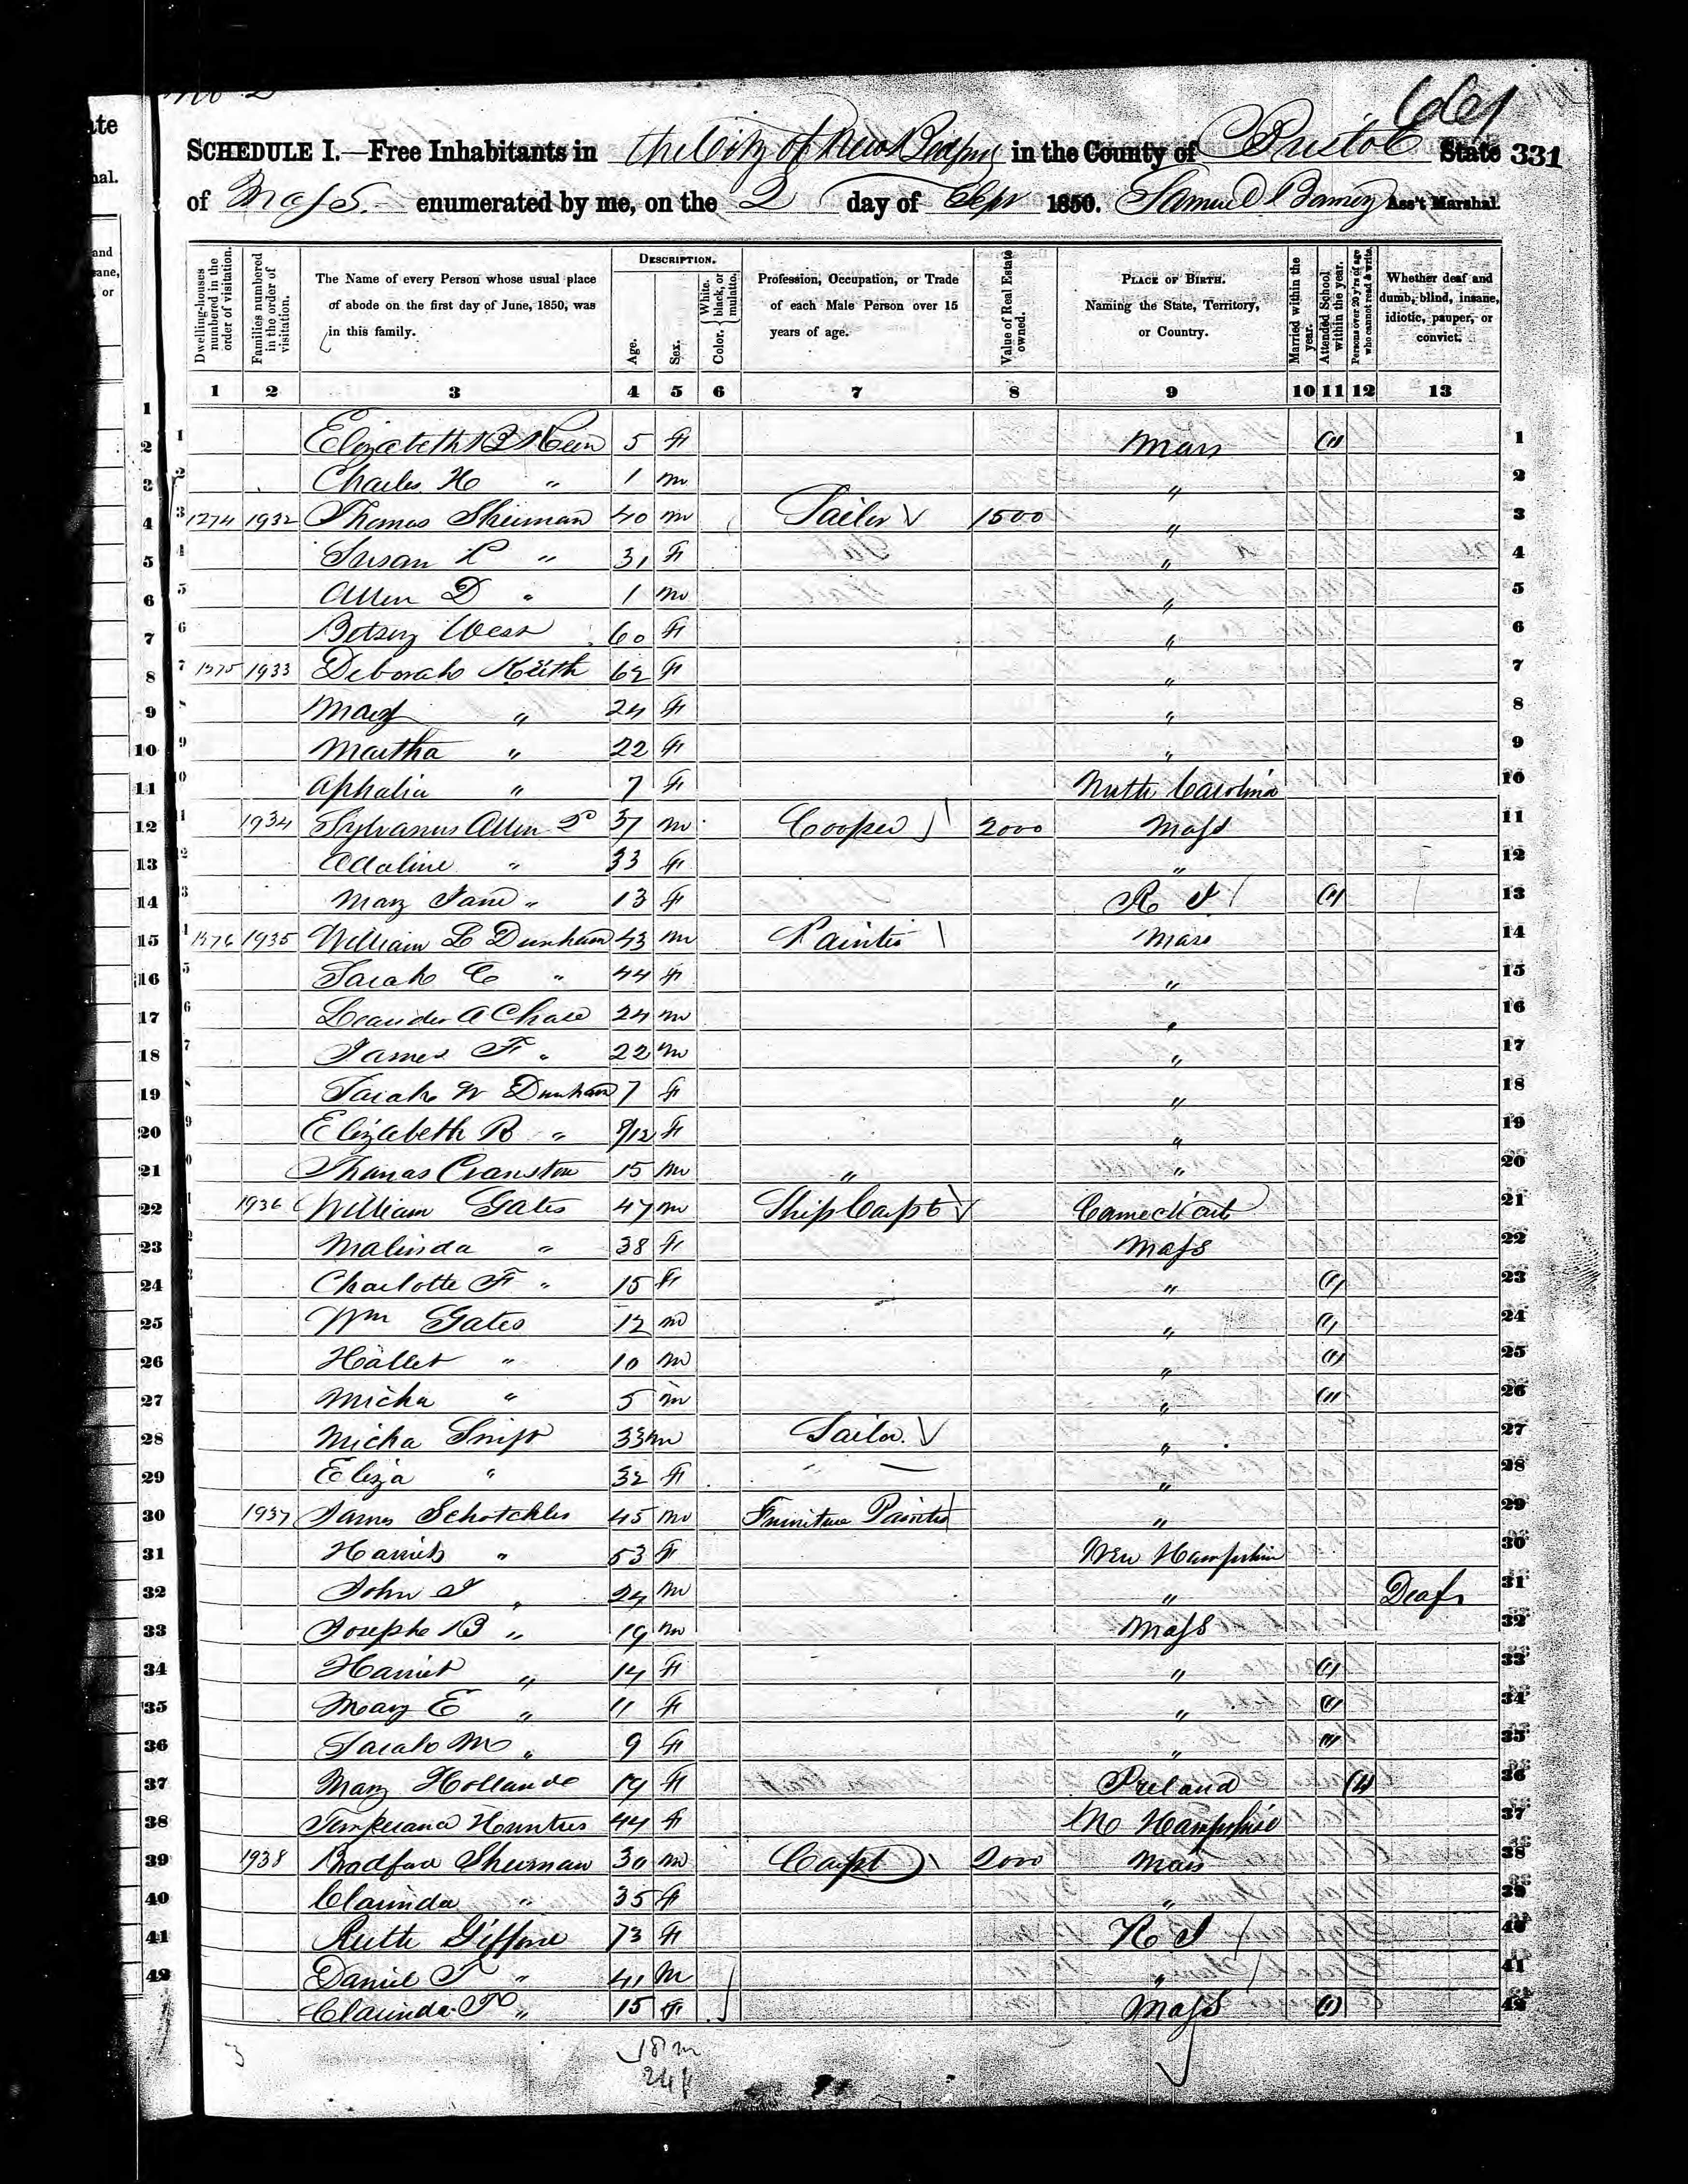 SCHEDULE I.—Free Inhabitants in the City of New Bedford in the County of Bristol State 331
of Mass. enumerated by me, on the 2 day of Sepr 1850. Samuel Barney Ass't Marshal.
Dwelling-houses numbered in the order of visitation.
Families numbered in the order of visitation.
The Name of every Person whose usual place of abode on the first day of June, 1850, was in this family.
DESCRIPTION.
Age.
Sex.
Color. White, black, or mulatto.
Profession, Occupation, or Trade of each Male Person over 15 years of age.
Value of Real Estate owned.
PLACE OF BIRTH. Naming the State, Territory, or Country.
Married within the year.
Attended School within the year.
Persons over 20 y'rs of age who cannot read & write.
Whether deaf and dumb, blind, insane, idiotic, pauper, or convict.
1 2 3 4 5 6 7 8 9 10 11 12 13
1 Elizabeth 5 F Mass 1
2 Charles H " 1 m " 2
3 1274 1932 Thomas Sherman 40 m 1500 " 3
4 Susan L " 31 F " 4
5 Allen D " 1 m " 5
6 Betsey West 60 F " 6
7 1275 1933 Deborah Keith 62 F " 7
8 Mary " 24 F " 8
9 Martha " 22 F " 9
10 Aphalia " 7 F North Carolina 10
11 1934 Sylvanus Allen 2d 37 m Cooper 2000 Mass 11
12 Adaline " 33 F " 12
13 Mary Jane " 13 F R I 13
14 1276 1935 William L Dunham 43 m Painter Mass 14
15 Sarah C " 44 F " 15
16 Leander A Chase 24 m " 16
17 James F " 22 m " 17
18 Sarah W Dunham 7 F " 18
19 Elizabeth B " /12 F " 19
20 Thomas Cranston 15 m " " 20
21 1936 William Gates 47 m Ship Capt Connecticut 21
22 Malinda " 38 F Mass 22
23 Charlotte F " 15 F " 23
24 Wm Gates 12 m " 24
25 Hallet " 10 m " 25
26 Micha " 5 m " 26
27 Micha Swift 33 m " 27
28 Eliza " 32 F " 28
29 1937 James 45 m Furniture Painter " 29
30 Harriet " 53 F New Hampshire 30
31 John " 24 m " Deaf 31
32 Joseph B " 19 m Mass 32
33 Harriet " 14 F " 33
34 Mary E " 11 F " 34
35 Sarah M " 9 F " 35
36 Mary Hollande 19 F Ireland 36
37 44 F N Hampshire 37
38 1938 Bradford Sherman 30 m Capt 2000 Mass 38
39 Clarinda " 35 F " 39
40 Ruth Gifford 73 F R I 40
41 Daniel T " 41 m " 41
42 Clarinda " 15 F Mass 42
18 m
24 f